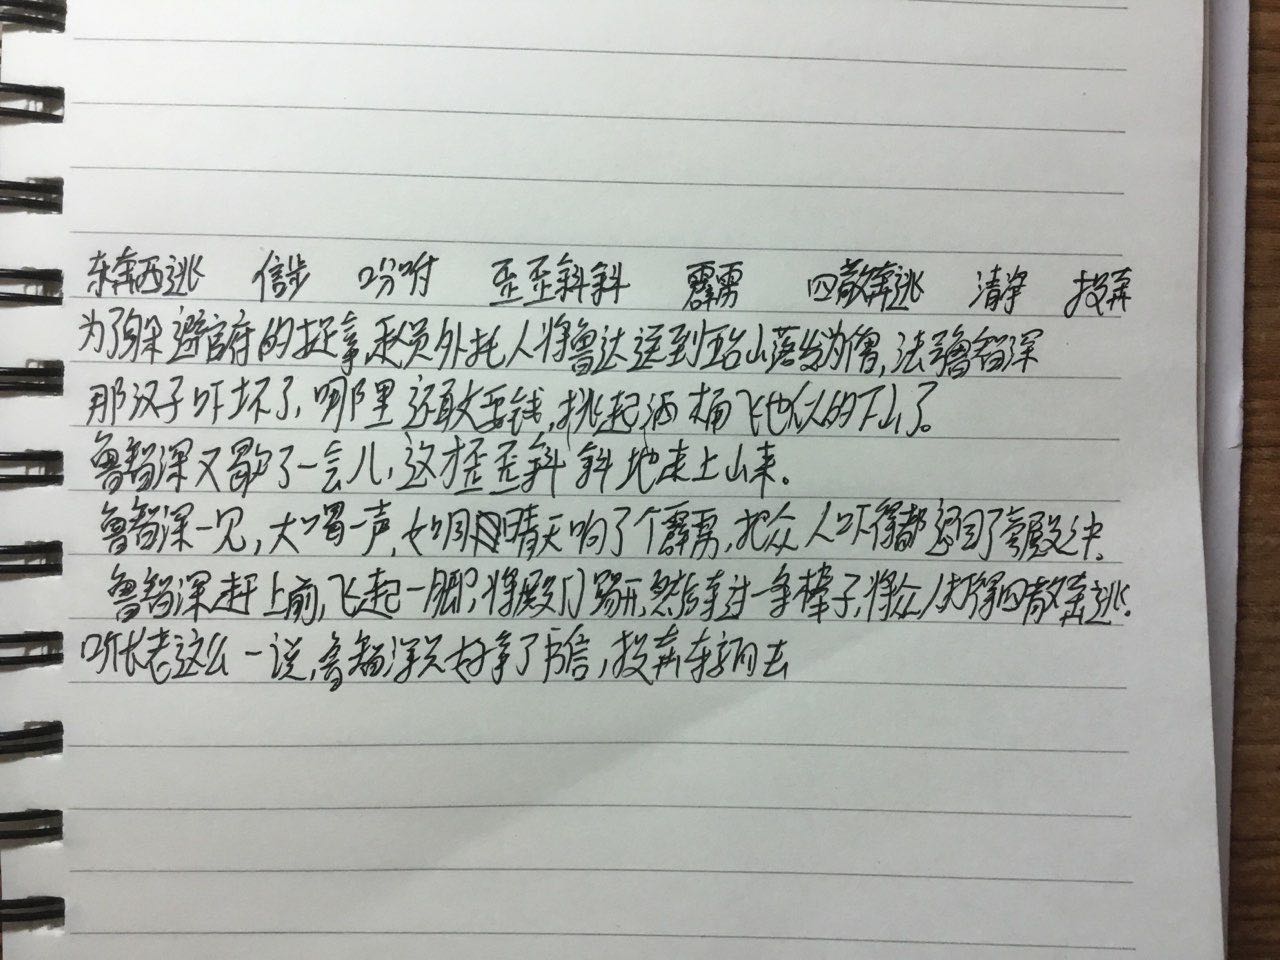 东奔西逃 信步 吩咐 歪歪斜斜 霹雳 四散奔逃 清净 投奔
为了躲避官府的捉拿,赵员外托人将鲁达送到五台山落发为僧,法号鲁智深
那汉子吓坏了,哪里还敢要钱,挑起酒桶飞也似的下山了。
鲁智深又歇了一会儿,这才歪歪斜斜地走上山来。
鲁智深一见,大喝一声,如同晴天响了个霹雳,把众人吓得都退回了殿之中。
鲁智深赶上前,飞起一脚,将殿门踢开,然后拿过一条棒子,将众人打得四散奔逃。
听长老这么一说,鲁智深只好拿了书信,投奔东京而去